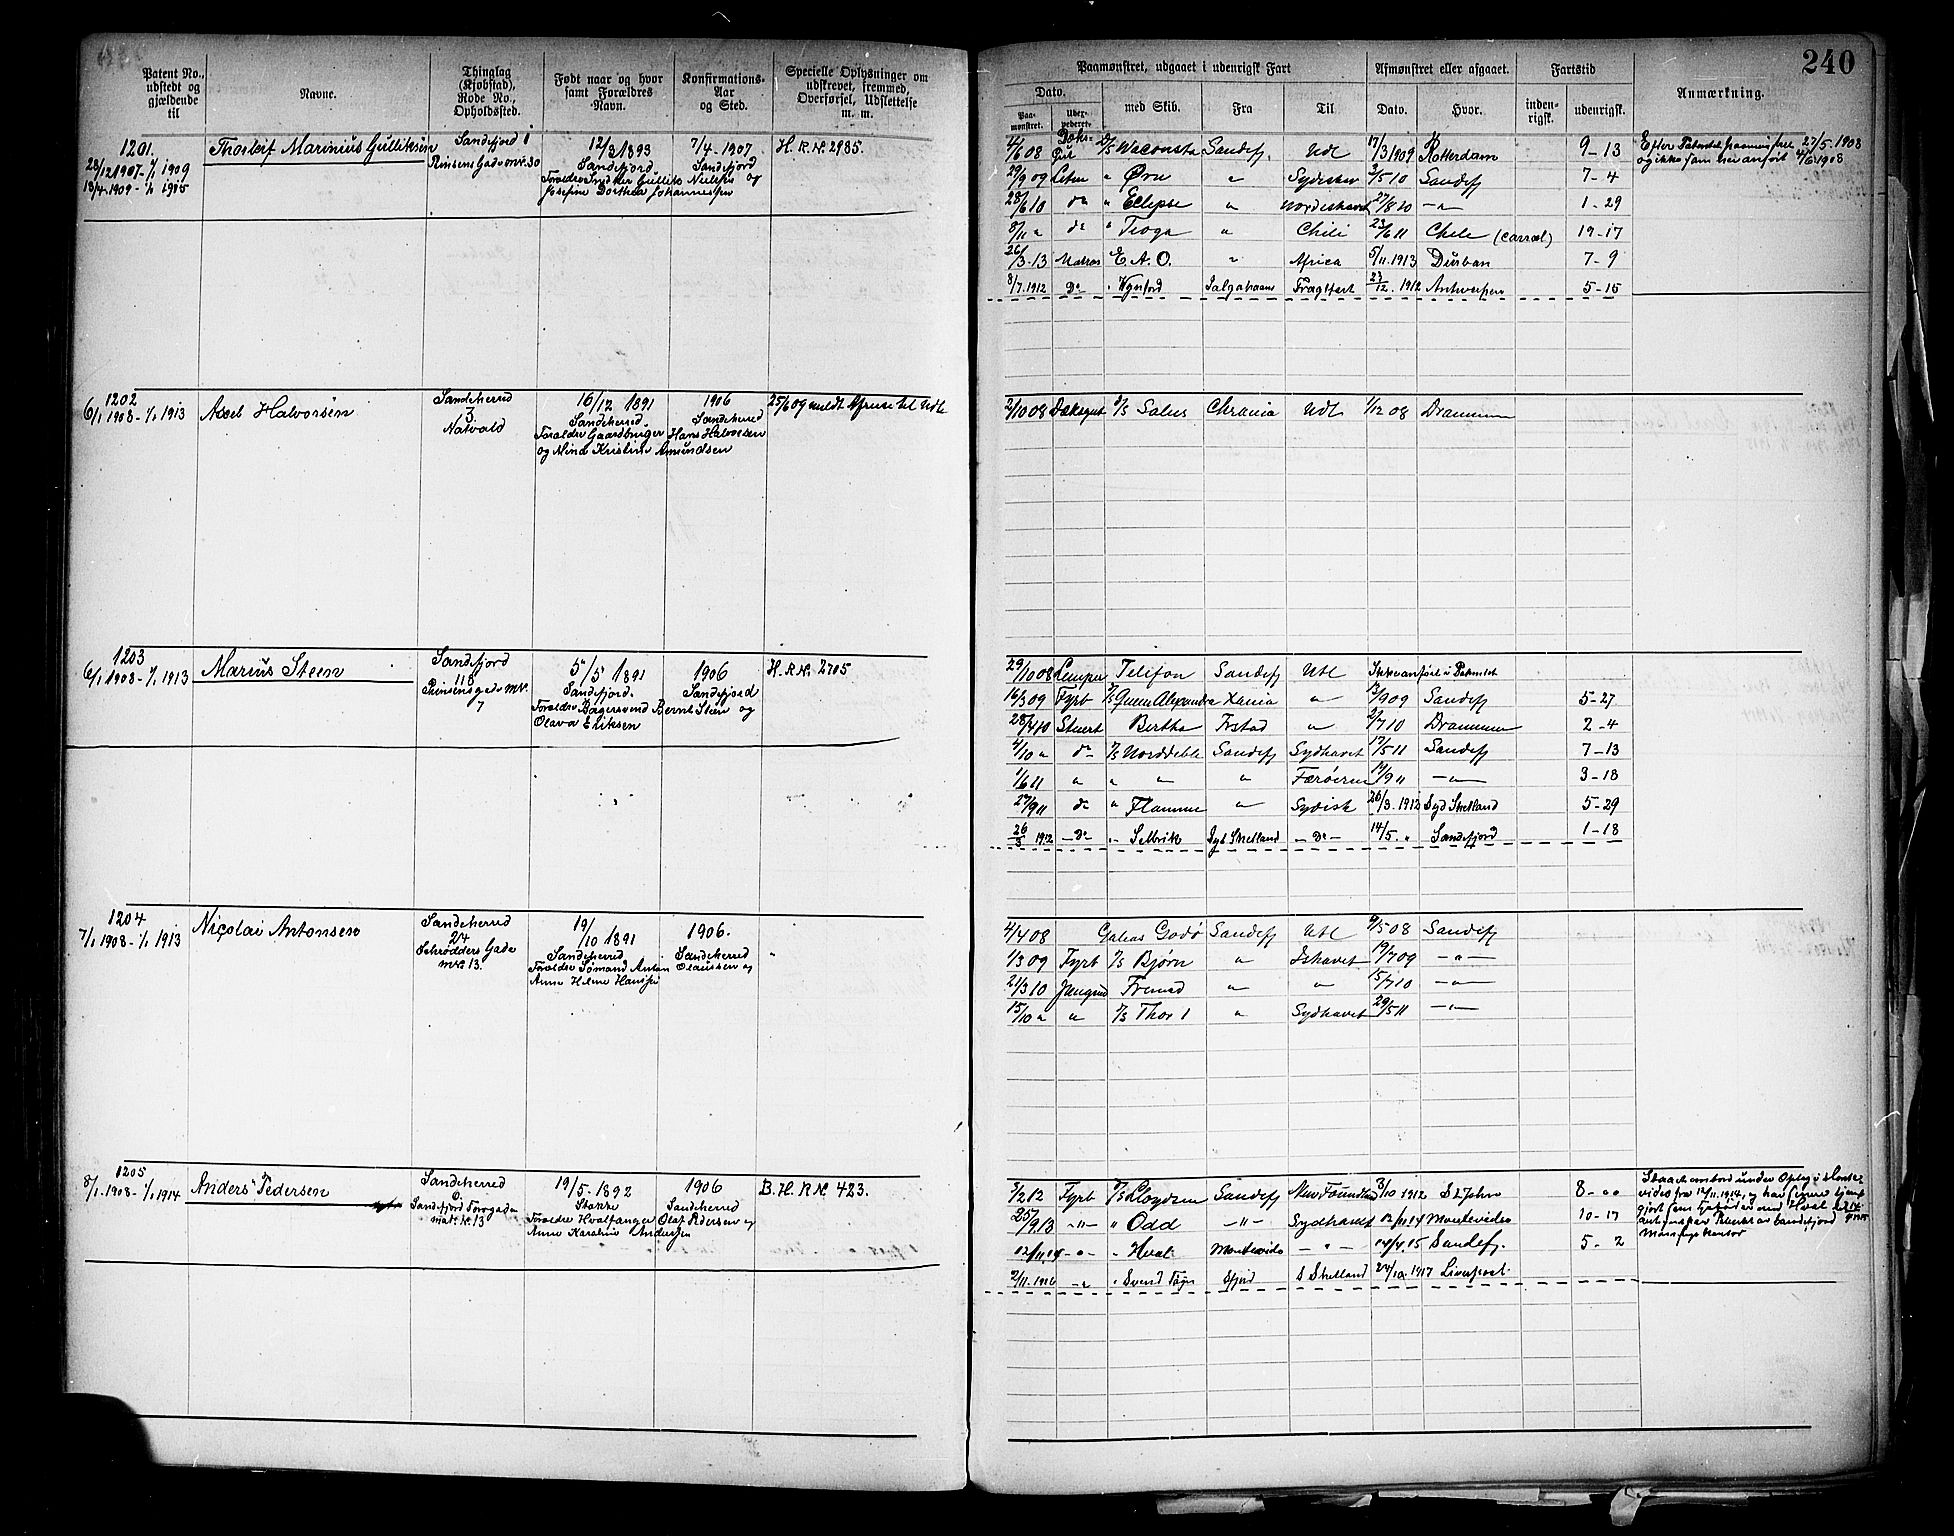 240
Patent No., udstedt og gjældende til
Navne.
Thinglag (Kjøbstad), Rode No., Opholdssted.
Født naar og hvor samt Forældres Navn.
Konfirmations- Aar og Sted.
Specielle Oplysninger om udskrevet, fremmed, Overførsel, Udslettelse m. m.
Paamønstret, udgaaet i udenrigsk Fart
Dato.
Paa-mønstret.
med Skib.
Fra
Til
Afmønstret eller afgaaet.
Dato.
Hvor.
Fartstid
inden-rigsk.
udenrigsk.
Anmærkning.
1201.
23/12 1907 - 1/1 1909
13/4 1909 - 1/1 1915
Thorleif Marinius Gulliksen
Sandefjord 1
Prinsens Gade mr. 30
12/3 1893
Sandefjord
7/4 - 1907
Sandefjord
Josefine Dorthea Johannessen
H. R. N. 2985.
4/6 08 Waconsta Sandefj. Udl 17/3 1909 Rotterdam 9 - 13
27/5 - 1908
og ikke som her anført 4/6 1908
29/9 09 " Ørn " Sydishav 5 10 Sandefj 7 - 4
28/6 10 do " Eclipse " Nordishavet 27/8 10 -"- 1 - 29
8/11 " do " Tioga " Chili 23/6 11 Chile (Corral) 19 - 17
26/3 - 13 Matros E. A. O. " Africa 5/11. 1913 Durban 7 - 9
8/7. 1912 Do " Fragtfart 23/12. 1912 Antwerpen 5 - 15
1202
6/1 1908 - 1/1 1913
Axel Halvorsen
Sandeherred
3
Natvald
16/12 1891
Sandeherred
Forældre Gaardbruger Hans Halvorsen
og Mina Kristine Amundsen
1906
Sandeherred
25/6 09 meldt Afreise til Udl.
2/10 08 Dæksgut S/S Salus Chrania Udl 1/12 08 Drammen
1203
6/1 1908 - 1/1 1913
Marius Steen
Sandefjord
118
Prinsensgade mr.
7
5/5 1891
Sandefjord.
Bernt Steen og
Olava Eriksen
1906
Sandefjord
H. R. N. 2705
29/10 08 Lemper Telefon Sandefj Udl
16/3 09 Fyrb Queen Alexandra Xania " 09 Sandefj 5 - 27
28/4 10 Stuert Bertha Frstad " 7 10 Drammen 2 - 4
4/10 " do Sandefj Sydhavet 17/5 11 Sandefj 7 - 13
1/6 11 " " " " Færøerne 19/9 11 -"- 3 - 18
27/9 11 do " Flamme " Sydish 26/3. 1912 Syd Shetland 5 - 29
26/3 1912 - Do - " Selvik Syd Shetland - Do - 14/5. " Sandefjord 1 - 18
1204
7/1 1908 - 1/1 1913
Nicolai Antonsen
Sandeherred
24
Schrødders Gade
mr. 13.
19/10 1891
Sandeherred
Forældre Sømand Anton Olaussen og
1906.
Sandeherred
4/4 08 Galeas Godø Sandefj Udl 9/5 08 Sandefj
1/3 09 Fyrb S/S Bjørn " Ishavet 19/7 09 -"-
21/3 10 Jungmd Fremad " " 15/7 10 -"-
15/10 " " S/S Thor 1 " Sydhavet 29/5 11 -"-
1205
8/1. 1908 - 1/1 1914
Anders Pedersen
Sandeherred
6
Sandefjord Torvgaden
matr. nr. 13
19/5 - 1892
Stokke
Forældre Hvalfanger Olaf Pedersen og
Anne Karoline Andersen
1906
Sandeherred
B. H. R. N. 423.
3/2 12 Fyrb S/S Lloydsen Sandefj New Foundland 3/10 1912 St John 8 - "
25/9 13 - " - " Odd - " - Sydhavet 12/11 14 Montevideo 10 - 17
12/11. 14 - " - " Hval Montevido - " - 14/4. 15 Sandefj. 5 - 2
9/11. 1916 - " " Svend Føyn Sfjord S Shetland 24/12. 1917 Liverpool.